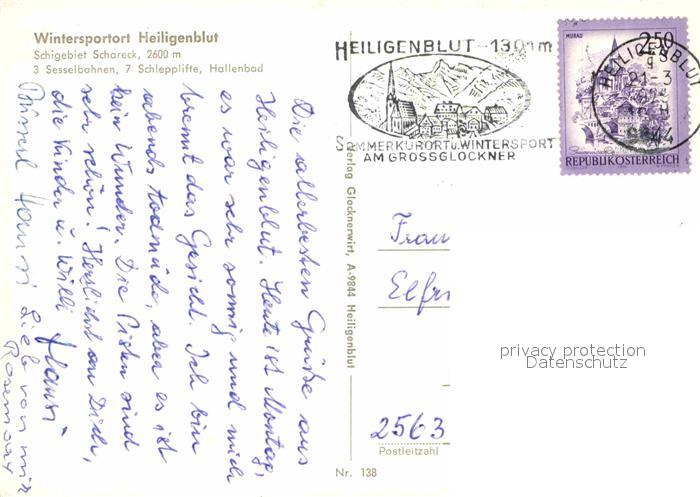 Wintersportort Heiligenblut
Schigebiet Schareck, 2600 m
3 Sesselbahnen, 7 Schlepplifte, Hallenbad
HEILIGENBLUT – 1301 m
SOMMERKURORT u. WINTERSPORT
AM GROSSGLOCKNER
MURAU
2.50
REPUBLIK ÖSTERREICH
HEILIGENBLUT
9844
Die allerbesten Grüße aus
Heiligenblut. Heute ist Montag,
es war sehr sonnig und mich
brennt das Gesicht. Ich bin
abends todmüde, aber es ist
kein Wunder. Die Pisten sind
sehr schön! Herzlichst an Dich,
die Kinder u. Willi Hansi
Bussel Hansi
Lieb von mir
Rosemary
Verlag Glocknerwirt, A-9844 Heiligenblut
Frau
Elfri
2563
Postleitzahl
Nr. 138
privacy protection
Datenschutz